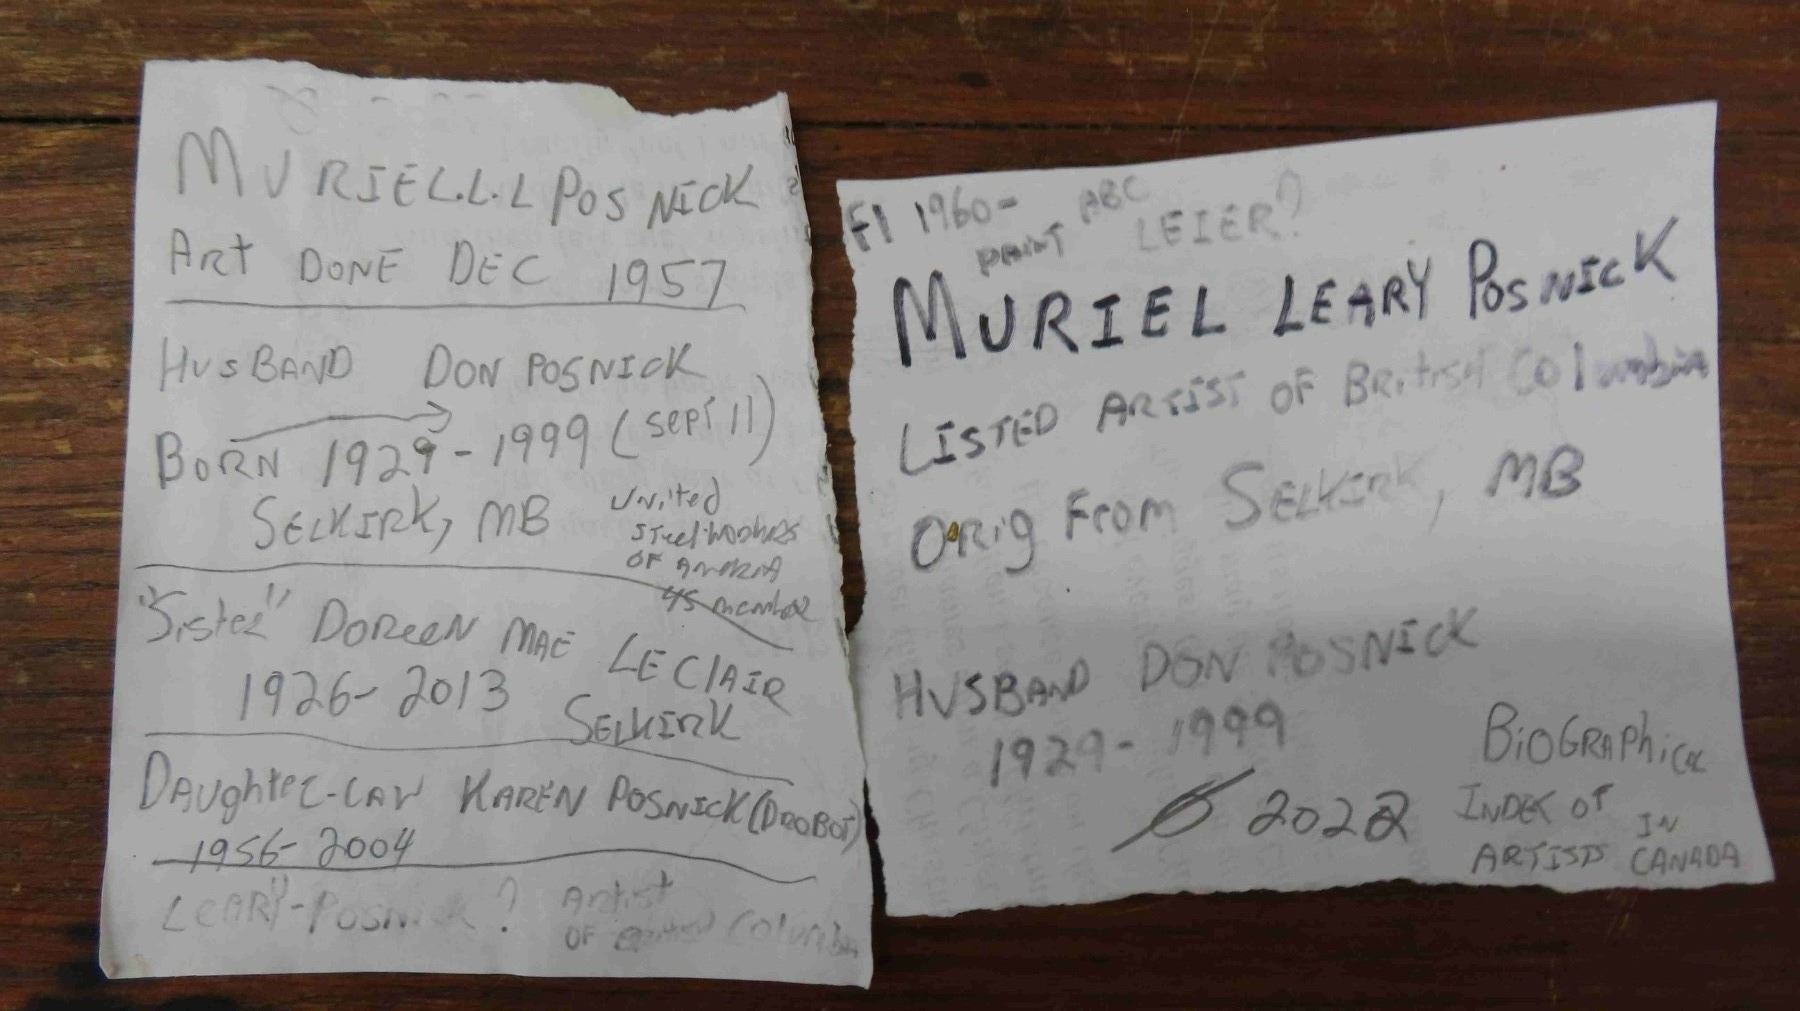 MURIEL.L.L POSNICK
ART DONE DEC 1957
HUSBAND DON POSNICK
BORN 1929-1999 (SEPT 11)
SELKIRK, MB
UNITED
STEELWORKERS
OF AMERICA
45 MEMBER
"SISTER" DOREEN MAE LECLAIR
1926-2013 SELKIRK
DAUGHTER-LAW KAREN POSNICK (DROBOT)
1956-2004
LEARY-POSNICK? ARTIST
OF BRITISH COLUMBIA
FI 1960- ABC LEIER?
PAINT
MURIEL LEARY POSNICK
LISTED ARTIST OF BRITISH COLUMBIA
ORIG FROM SELKIRK, MB
HUSBAND DON POSNICK
1929-1999
2022
BIOGRAPHICAL
INDEX OF
ARTISTS IN
CANADA